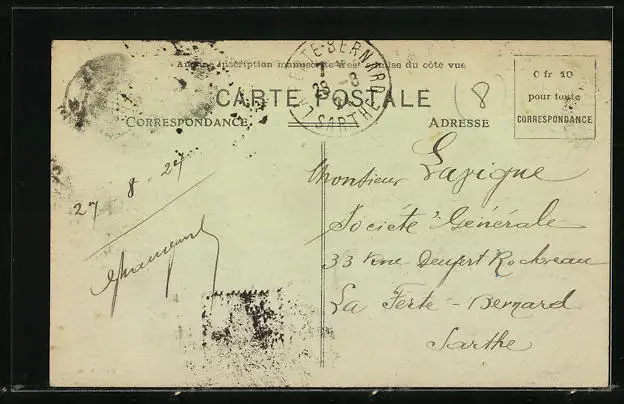 Aucune inscription manuscrite n'est admise du côté vue
CARTE POSTALE
CORRESPONDANCE
ADRESSE
0 fr 10
pour toute
CORRESPONDANCE
8
SARTHE
27 - 8 - 27
Monsieur Lavigne
Société Générale
33 Rue Denfert Rochereau
La Ferté - Bernard
Sarthe